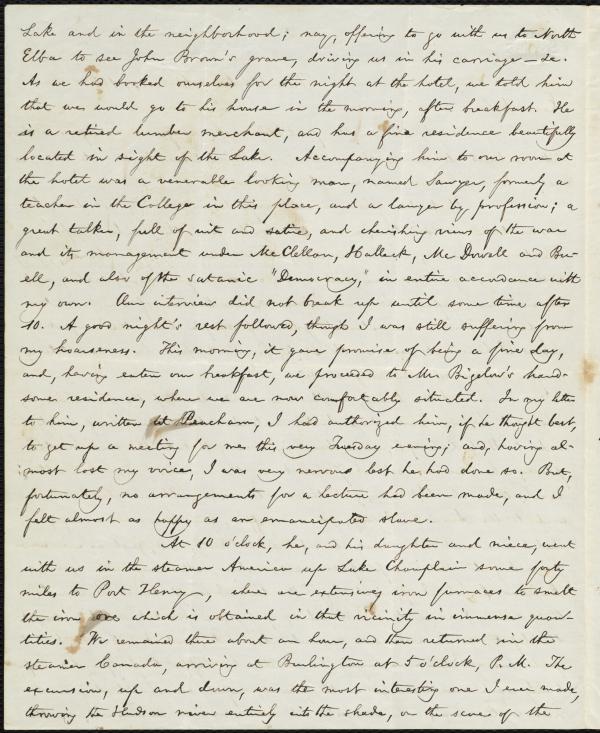 Lake and in the neighborhood; nay, offering to go with us to North
Elba to see John Brown's grave, driving us in his carriage — &c.
As we had booked ourselves for the night at the hotel, we told him
that we would go to his house in the morning, after breakfast. He
is a retired lumber merchant, and has a fine residence beautifully
located in sight of the Lake. Accompanying him to our room at
the hotel was a venerable looking man, named Sawyer, formerly a
teacher in the College in this place, and a lawyer by profession; a
great talker, full of wit and satire, and cherishing views of the war
and its management under McClellan, Halleck, McDowell and Bu-
ell, and also of the satanic "Democracy," in entire accordance with
my own. Our interview did not break up until some time after
10. A good night's rest followed, though I was still suffering from
my hoarseness. This morning, it gave promise of being a fine day,
and, having eaten our breakfast, we proceeded to Mr. Bigelow's hand-
some residence, where we are now comfortably situated. In my letter
to him, written at Peacham, I had authorized him, if he thought best,
to get up a meeting for me this very Tuesday evening; and, having al-
most lost my voice, I was very nervous lest he had done so. But,
fortunately, no arrangements for a lecture had been made, and I
felt almost as happy as an emancipated slave.
At 10 o'clock, he, and his daughter and niece, went
with us in the steamer America up Lake Champlain some forty
miles to Port Henry, where are extensive iron furnaces to smelt
the iron ore which is obtained in that vicinity in immense quan-
tities. We remained there about an hour, and then returned in the
steamer Canada, arriving at Burlington at 5 o'clock, P.M. The
excursion, up and down, was the most interesting one I ever made,
throwing the Hudson river entirely into the shade, on the score of the